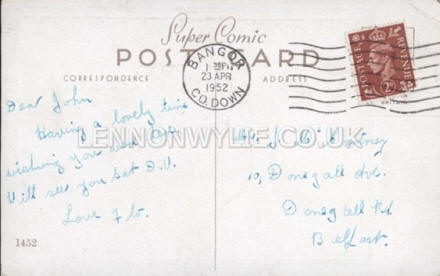 Super Comic
POST CARD
CORRESPONDENCE
ADDRESS
BANGOR
23 APR
1952
CO. DOWN
POSTAGE
REVENUE
Dear John
Having a lovely time
wishing you were
Will see you Sat D.V.
Love Flo.
J. McCartney
10, Donegall Ave.
Donegall Rd
Belfast.
1452
LENNONWYLIE.CO.UK